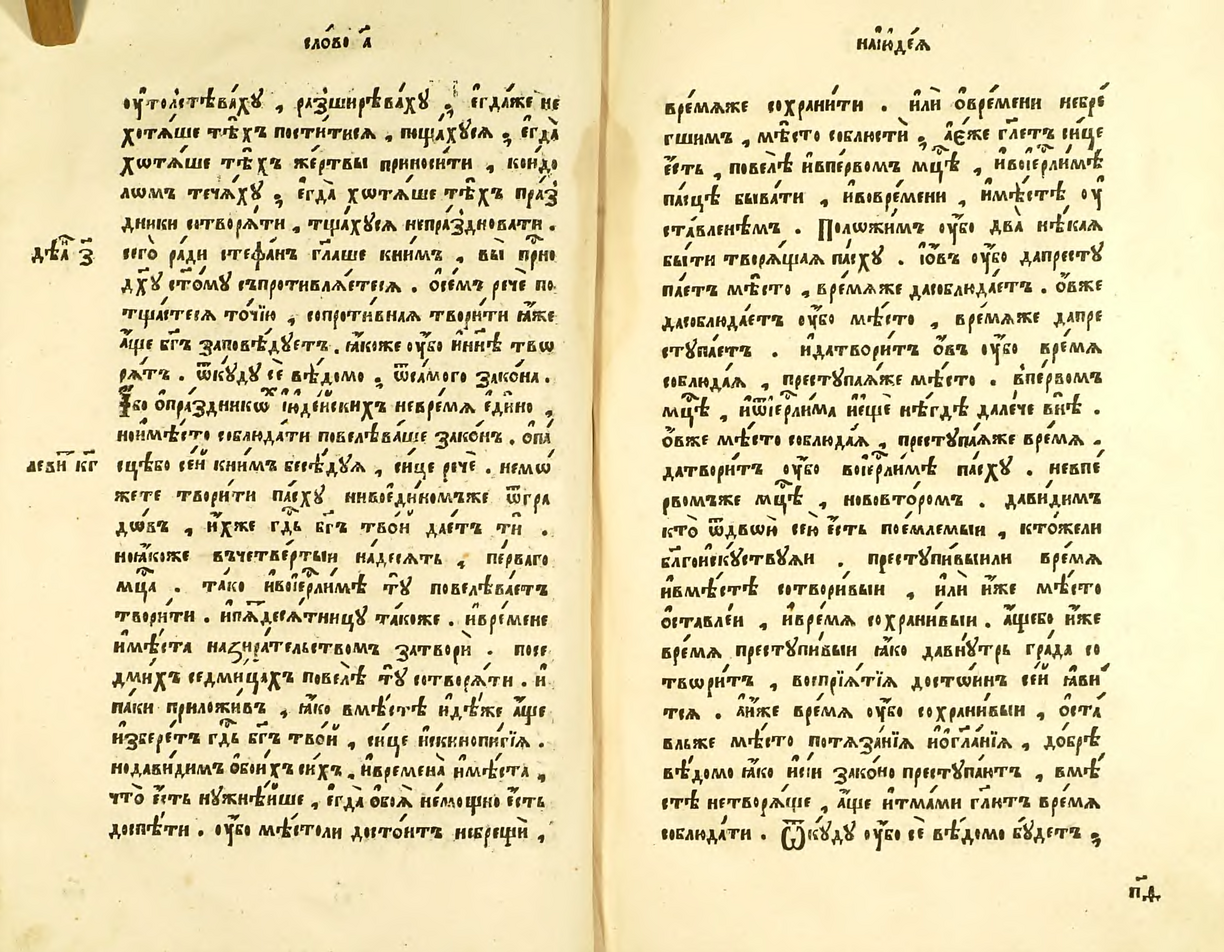 сло́во а҃
ѹ҆толстѣва́хꙋ , разширѣва́хꙋ ; є҆гда́же не
хотѧ́ше тѣ́хъ пости́тисѧ , поща́хꙋсѧ ; є҆гда̀
хѡтѧ́ше тѣ́хъ же́ртвы приноси́ти , коидо
лѡмъ теча́хꙋ ; є҆гда̀ хѡтѧ́ше тѣ́хъ пра́з
дники сотворѧ́ти , тща́хꙋсѧ непра́здновати .
дѣѧ҃ и҃ з҃
сего̀ ра́ди стефа́нъ гл҃аше кни́мъ , вы̀ при́сно
дх҃ꙋ ст҃омꙋ съпротивлѧ́етесѧ . ѻ҆се́мъ речѐ по
тща́стесѧ то́чїю , сопроти́внаѧ твори́ти ꙗ҆́же
а҆́ще бг҃ъ заповѣ́дꙋетъ . ꙗ҆́коже ѹ҆́бо и҆нн҃ѣ твѡ
рѧ́тъ . ѿкꙋ́дꙋ сѐ вѣ́домо ; ѿсамого закѡ́на .
И҆́бо ѻ҆пра́здникѡⷯ і҆ꙋде́йскихъ невре́мѧ є҆ди́но ,
нои҆мѣ́сто соблюда́ти повелѣва́ше зако́нъ . ѻ҆па́
леви́ⷮ кг҃
сцѣбо се́й кни́мъ бесѣ́дꙋѧ , си́це речѐ . немѡ́
жете твори́ти па́схꙋ нивоеди́номъже ѿгра
дѡ́въ , и҆́хже гдⷭ҇ь бг҃ъ тво́й дае́тъ тѝ .
ноꙗ҆́коже въчетве́ртыи на́десѧть , пе́рваго
мцⷭ҇а . та́ко и҆воі҆ерⷭ҇ли́мѣ тꙋ̀ повелѣва́етъ
твори́ти . и҆пѧⷮдесѧ́тницꙋ та́коже . и҆вре́мене
и҆мѣ́ста назира́тельствомъ затворѝ . посе
дми́хъ седми́цахъ повелѣ̀ тꙋ̀ сотворѧ́ти . и҆
па́ки приложи́въ , ꙗ҆́ко вмѣ́стѣ и҆дѣ́же а҆́ще
и҆збере́тъ гдⷭ҇ь бг҃ъ тво́й , си́це и҆скинопиги́ѧ .
нодави́димъ ѻ҆бои́хъ си́хъ , и҆времена̀ и҆мѣ́ста ,
что̀ є҆́сть нꙋжнѣ́йше , є҆гда̀ ѻ҆боѧ̀ немо́щно є҆́сть
доспѣ́ти . ѹ҆́бо мѣ́столи досто́итъ небрещѝ ,
наі҆юде́ѧ
вре́мѧже сохрани́ти . и҆лѝ ѻ҆вре́мени небре́
гшимъ , мѣ́сто соблюстѝ ; а҆є҆́же гл҃етъ си́це
є҆́сть , повелѣ̀ и҆впе́рвомъ мцⷭ҇ѣ , и҆воі҆ерⷭ҇ли́мѣ
па́сцѣ быва́ти , и҆вовре́мени , и҆мѣ́стѣ ѹ҆
ста́вленѣмъ . Поло́жимъ ѹ҆́бо два̀ нѣ́каѧ
бы́ти творѧ́щаѧ па́схꙋ . і҆ѻ҆́въ ѹ҆́бо дапрестꙋ
па́етъ мѣ́сто , вре́мѧже дасоблюда́етъ . ѻ҆́вже
дасоблюда́етъ ѹ҆́бо мѣ́сто , вре́мѧже дапре
стꙋпа́етъ . и҆датвори́тъ ѻ҆́въ ѹ҆́бо вре́мѧ
соблюда́ѧ , престꙋпа́ѧже мѣ́сто . впе́рвомъ
мцⷭ҇ѣ , и҆ѿі҆ерⷭ҇ли́ма и҆ещѐ нѣ́гдѣ дале́че внѣ̀ .
ѻ҆́вже мѣ́сто соблюда́ѧ , престꙋпа́ѧже вре́мѧ .
датвори́тъ ѹ҆́бо воі҆ерⷭ҇ли́мѣ па́схꙋ . невпе́
рвомъже мцⷭ҇ѣ , нововторо́мъ . дави́димъ
кто̀ ѿдвѡи̑ се́ю є҆́сть пое́млемыи , кто́жели
бл҃гоискꙋ́ствꙋѧи . престꙋпи́выили вре́мѧ
и҆вмѣ́стѣ сотвори́выи , и҆лѝ и҆́же мѣ́сто
ѻ҆ста́влеи , и҆вре́мѧ сохрани́выи . а҆́щебо и҆́же
вре́мѧ престꙋпи́выи ꙗ҆́ко давнꙋ́трь гра́да со
твори́тъ , воспрїѧ́тїѧ досто́инъ се́й ꙗ҆ви́
тсѧ . а҆и҆́же вре́мѧ ѹ҆́бо сохрани́выи , ѻ҆ста́
вльже мѣ́сто потѧза́нїѧ и҆ѻ҆гла́нїѧ , до́брѣ
вѣ́домо ꙗ҆́ко и҆сіи зако́но престꙋпа́ютъ , вмѣ́
стѣ нетворѧ́ще , а҆́ще и҆тма́ми гл҃ютъ вре́мѧ
соблюда́ти . Ѿкꙋ́дꙋ ѹ҆́бо сѐ вѣ́домо бꙋ́детъ ;
п҃д